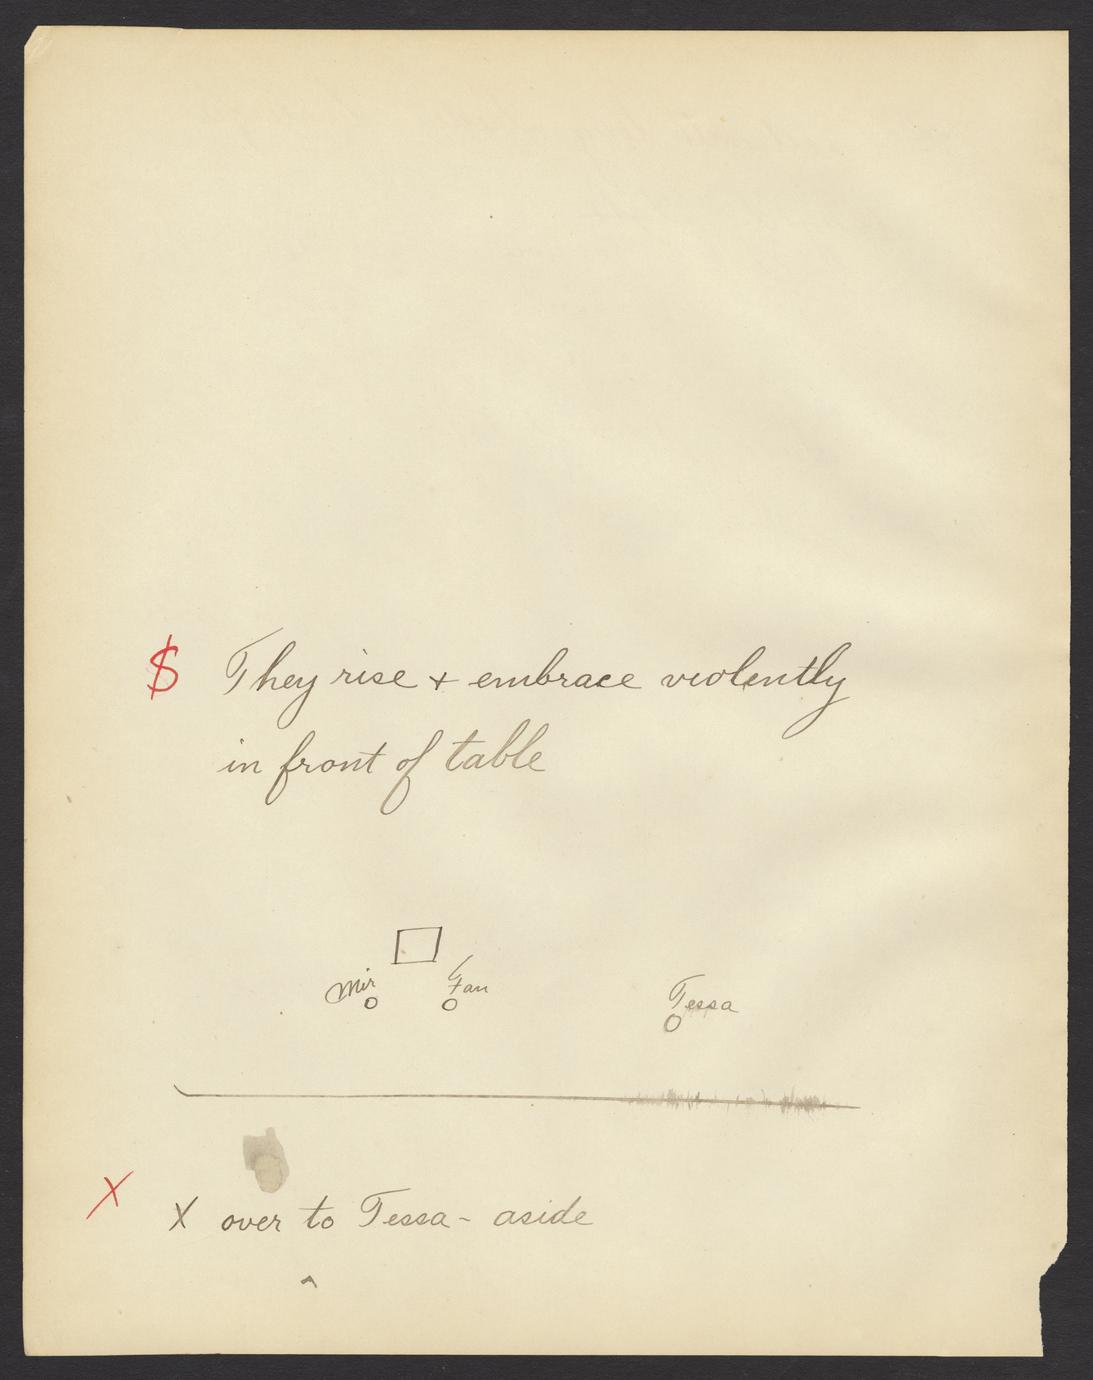 $ They rise + embrace violently
in front of table
Mir Fan Tessa
X X over to Tessa - aside